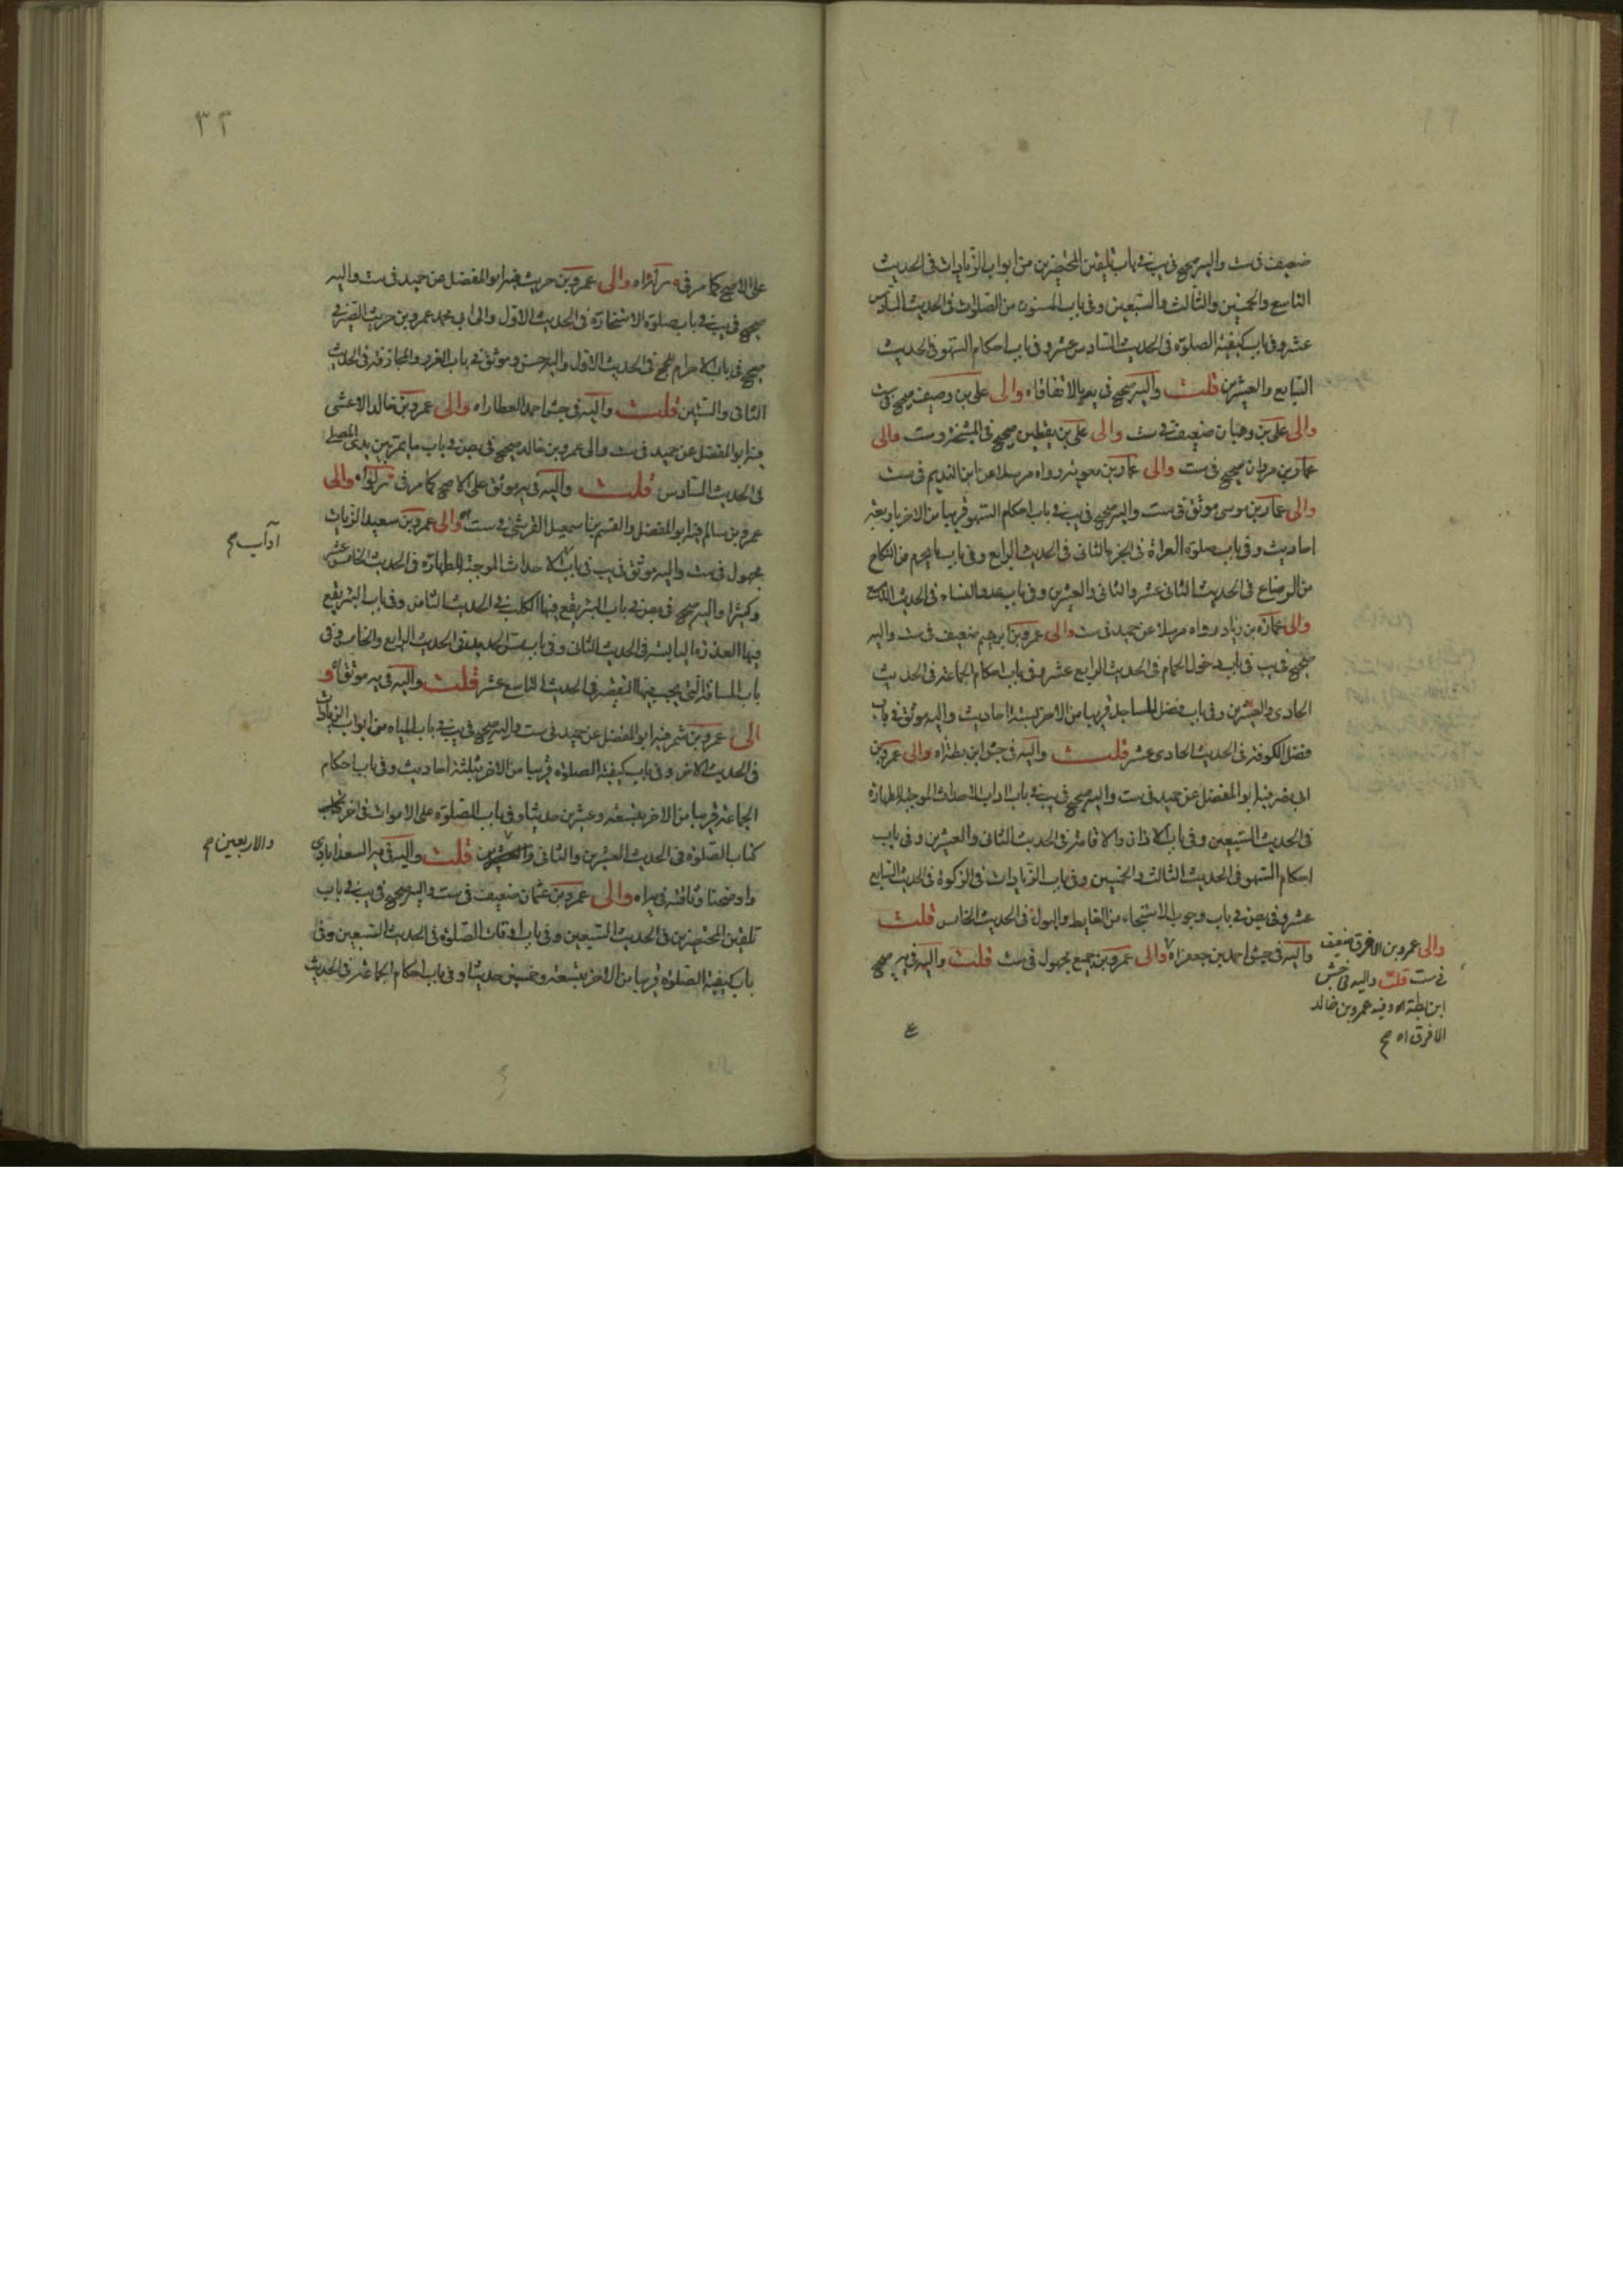 ضعيف في ست واليه صحيح في يب في باب تلقين المحتضرين من ابواب الزيادات في الحديث
التاسع والخمسين والثالث والسبعين وفي باب المسنون من الصلوات في الحديث السادس
عشر وفي باب كيفية الصلوة في الحديث السادس عشر وفي باب احكام السهو في الحديث
السابع والعشرين قلت واليه صحيح في يه بالاتفاق اه والى علي بن وصيف صحيح في ست
والى علي بن وهبان ضعيف في ست والى علي بن يقطين صحيح في المشيخة وست والى
عمار بن مروان صحيح في ست والى عمار بن معوية رواه مرسلا عن ابن النديم في ست
والى عمار بن موسى موثق في ست واليه صحيح في يب في باب احكام السهو قريبا من الاخر باربعة
احاديث وفي باب صلوة العراة في الجزء الثاني في الحديث الرابع وفي باب ما يحرم من النكاح
من الرضاع في الحديث الثاني عشر والثاني والعشرين وفي باب عدد النساء في الحديث التاسع
والى عمارة بن زياد رواه مرسلا عن حميد في ست والى عمرو بن ابرهيم ضعيف في ست واليه
صحيح في يب في باب دخول الحمام في الحديث الرابع عشر وفي باب احكام الجماعة في الحديث
الحادي والعشرين وفي باب فضل المساجد قريبا من الاخر بستة احاديث واليه موثق في باب
فضل الكوفة في الحديث الحادي عشر قلت واليه في جش ابن بطة اه والى عمرو بن
ابي نصر فيه ابو المفضل عن حميد في ست واليه صحيح في يب في باب اداب الاحداث الموجبة للطهارة
في الحديث السبعين وفي باب الاذان والاقامة في الحديث الثاني والعشرين وفي باب
احكام السهو في الحديث الثالث والخمسين وفي باب الزيادات في الزكوة في الحديث السابع
عشر وفي بص في باب وجوب الاستنجاء من الغايط والبول في الحديث الخامس قلت
واليه في جش احمد بن جعفر اه والى عمرو بن جميع مجهول في ست قلت واليه في يه صحيح
والى عمرو بن الافرق ضعيف
في ست قلت واليه في جش
ابن بطة اه وفيه عمرو بن خالد
الافرق اه صح
٣٢
على الاصح كما مر في والى عمرو بن حريث فيه ابو المفضل عن حميد في ست واليه
صحيح في يب في باب صلوة الاستخارة في الحديث الاول والى ابي محمد عمرو بن حريث الصيرفي
صحيح في باب الاحرام للحج في الحديث الاول واليه حسن وموثق في باب الغرر والمجازفة في الحديث
الثاني والستين قلت واليه في جش احمد العطار اه والى عمرو بن خالد الاعشى
فيه ابو المفضل عن حميد في ست والى عمرو بن خالد صحيح في بص في باب ما يمر بين يدي المصلي
في الحديث السادس قلت واليه في يه موثق على الاصح كما مر في والى
عمرو بن سالم فيه ابو المفضل والقسم بن اسمعيل القرشي في ست اه والى عمرو بن سعيد الزيات
مجهول في ست واليه موثق في يب في باب الاحداث الموجبة للطهارة في الحديث الخامس عشر
وكثيرا واليه صحيح في بص في باب البئر يقع فيها الكلب في الحديث الثامن وفي باب البئر يقع
فيها العذرة اليابسة في الحديث الثاني وفي باب مس الحديد في الحديث الرابع والخامس وفي
باب المسافة التي يجب فيها التقصير في الحديث التاسع عشر قلت واليه في يه موثق اه و
الى عمرو بن شمر فيه ابو المفضل عن حميد في ست واليه صحيح في يب في باب المياه من ابواب الزيادات
في الحديث الاخر وفي باب كيفية الصلوة قريبا من الاخر بثلثة احاديث وفي باب احكام
الجماعة قريبا من الاخر بتسعة وعشرين حديثا وفي باب الصلوة على الاموات في اخر
كتاب الصلوة في الحديث العشرين والثاني قلت واليه في يه السعدابادي
واوضحنا وثاقته في يه اه والى عمرو بن عثمان ضعيف في ست واليه صحيح في يب في باب
تلقين المحتضرين في الحديث السبعين وفي باب اوقات الصلوة في الحديث السبعين وفي
باب كيفية الصلوة قريبا من الاخر بتسعة وخمسين حديثا وفي باب احكام الجماعة في الحديث
آداب صح
والاربعين صح